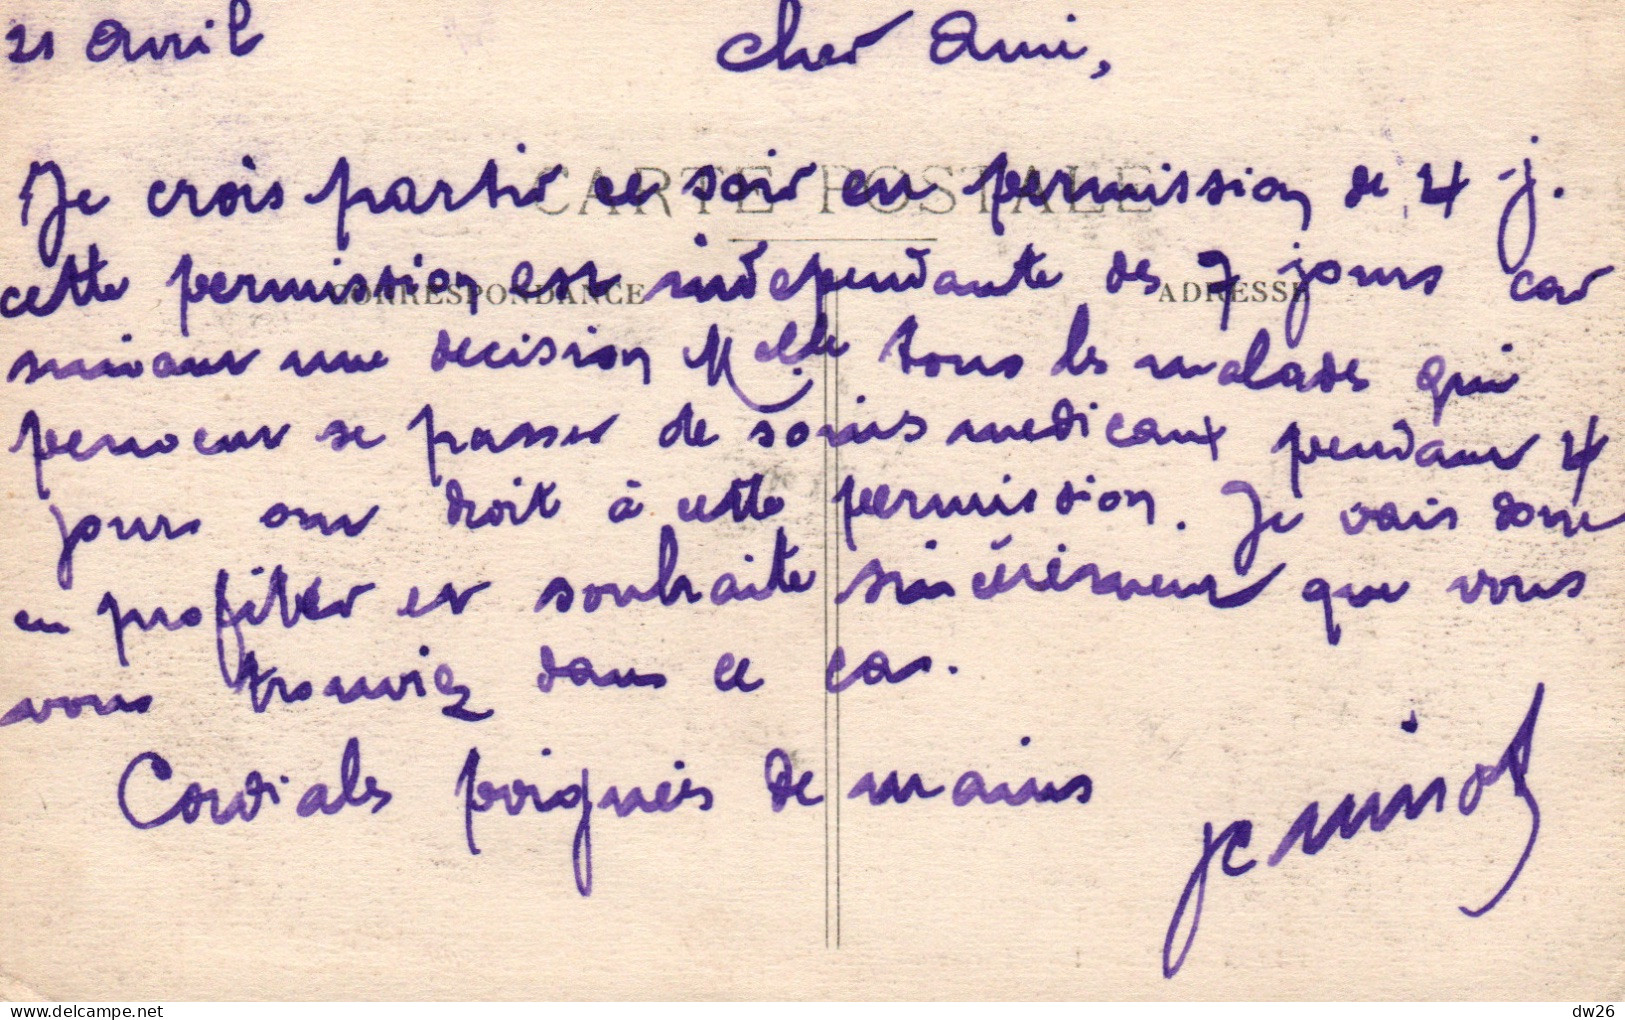 21 Avril
Cher Ami,
CARTE POSTALE
Je crois partir ce soir en permission de 4 j.
CORRESPONDANCE
ADRESSE
cette permission est indépendante des 7 jours car
suivant une decision Mlle tous les malades qui
peuvent se passer de soins medicaux pendant 4
jours ont droit à cette permission. Je vais donc
en profiter et souhaite sincérement que vous
vous trouviez dans ce cas.
Cordiales poignées de mains
dw26